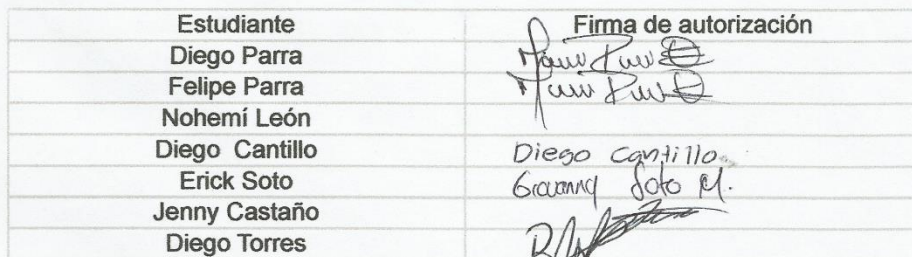 Estudiante Firma de autorización
Diego Parra
Felipe Parra
Nohemí León
Diego Cantillo Diego Cantillo
Erick Soto Giovanny Soto M.
Jenny Castaño
Diego Torres